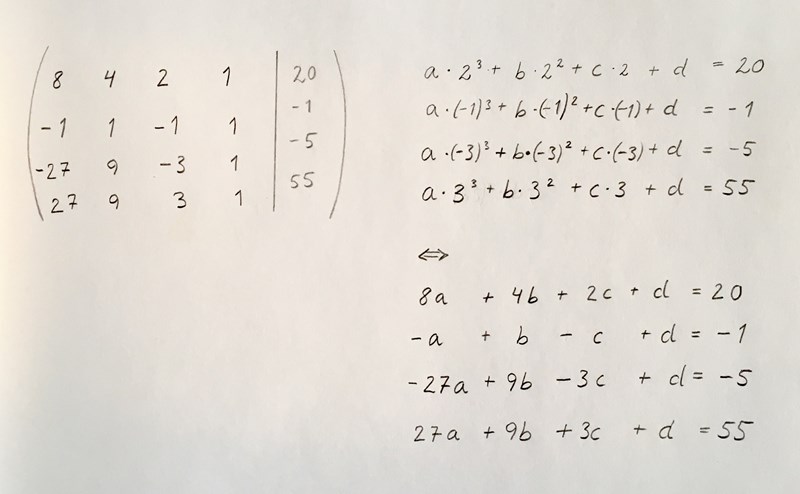 8 4 2 1 | 20
-1 1 -1 1 | -1
-27 9 -3 1 | -5
27 9 3 1 | 55
a · 2³ + b · 2² + c · 2 + d = 20
a · (-1)³ + b · (-1)² + c · (-1) + d = -1
a · (-3)³ + b · (-3)² + c · (-3) + d = -5
a · 3³ + b · 3² + c · 3 + d = 55
⇔
8a + 4b + 2c + d = 20
-a + b - c + d = -1
-27a + 9b - 3c + d = -5
27a + 9b + 3c + d = 55